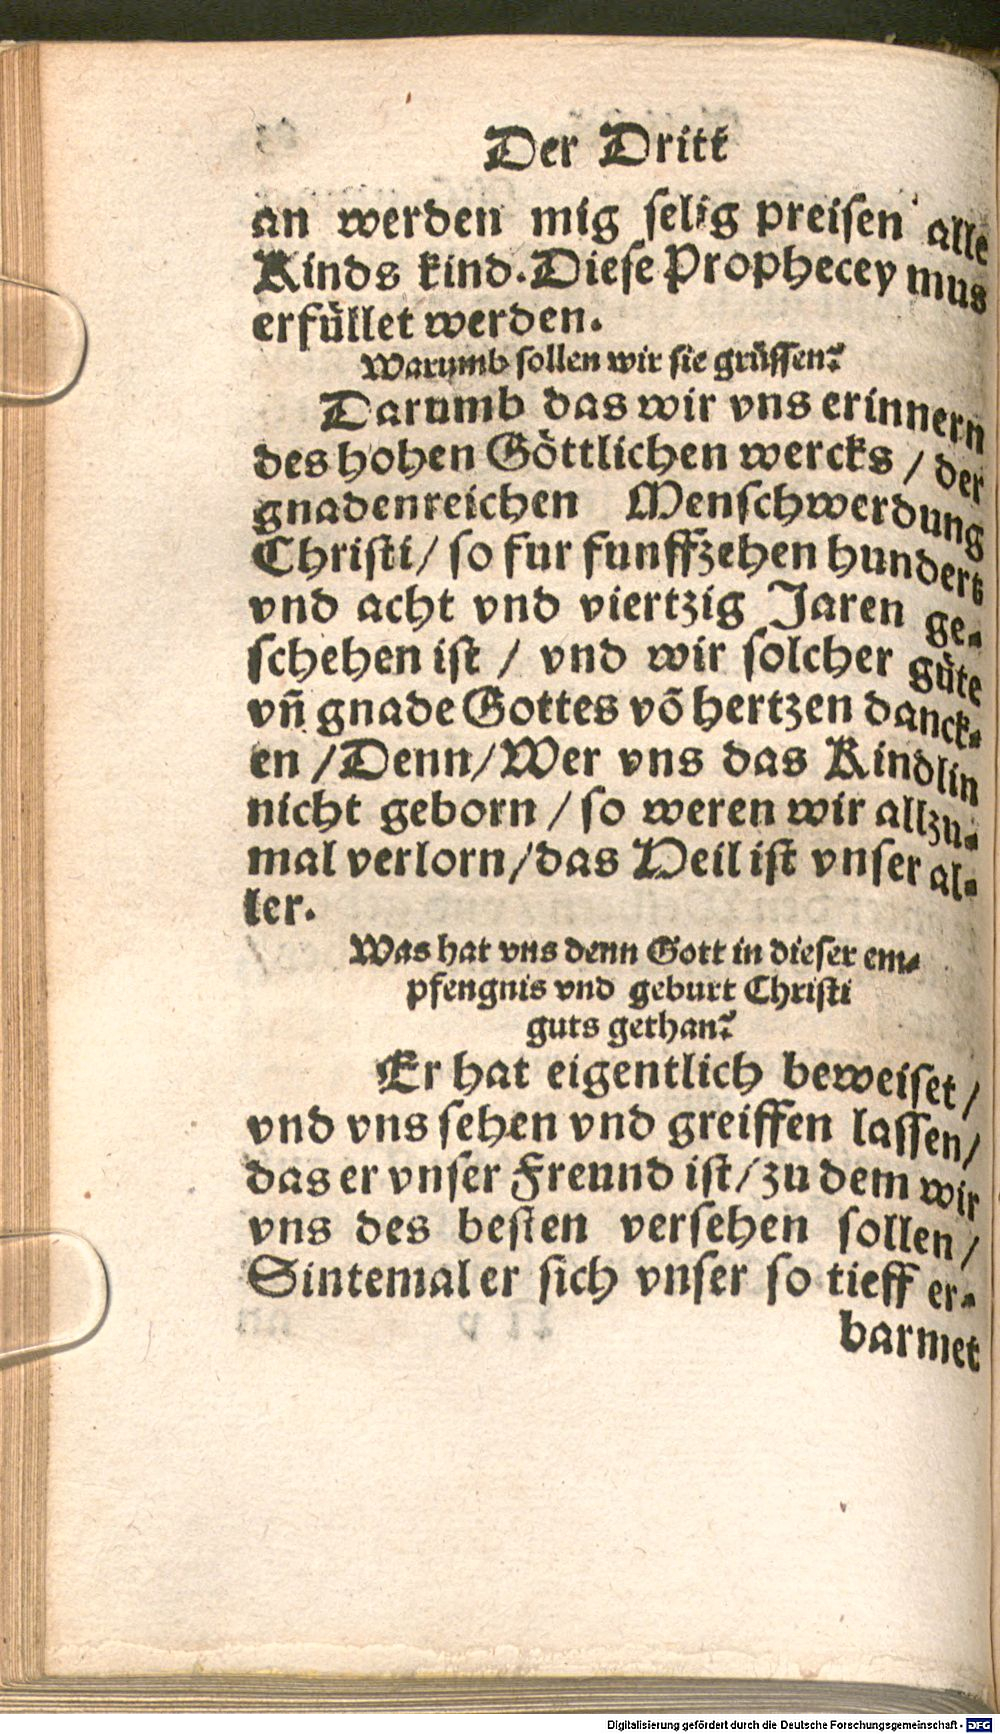 Der Dritt
an werden mig selig preisen alle
Kinds kind. Diese Prophecey mus
erfüllet werden.
Warumb sollen wir sie grüssen?
Darumb das wir vns erinnern
des hohen Göttlichen wercks / der
gnadenreichen Menschwerdung
Christi / so fur funffzehen hundert
vnd acht vnd viertzig Jaren ge-
schehen ist / vnd wir solcher güte
vñ gnade Gottes võ hertzen danck-
en / Denn / Wer vns das Kindlin
nicht geborn / so weren wir allzu-
mal verlorn / das Heil ist vnser al-
ler.
Was hat vns denn Gott in dieser em-
pfengnis vnd geburt Christi
guts gethan?
Er hat eigentlich beweiset /
vnd vns sehen vnd greiffen lassen /
das er vnser Freund ist / zu dem wir
vns des besten versehen sollen /
Sintemal er sich vnser so tieff er-
barmet
Digitalisierung gefördert durch die Deutsche Forschungsgemeinschaft - DFG